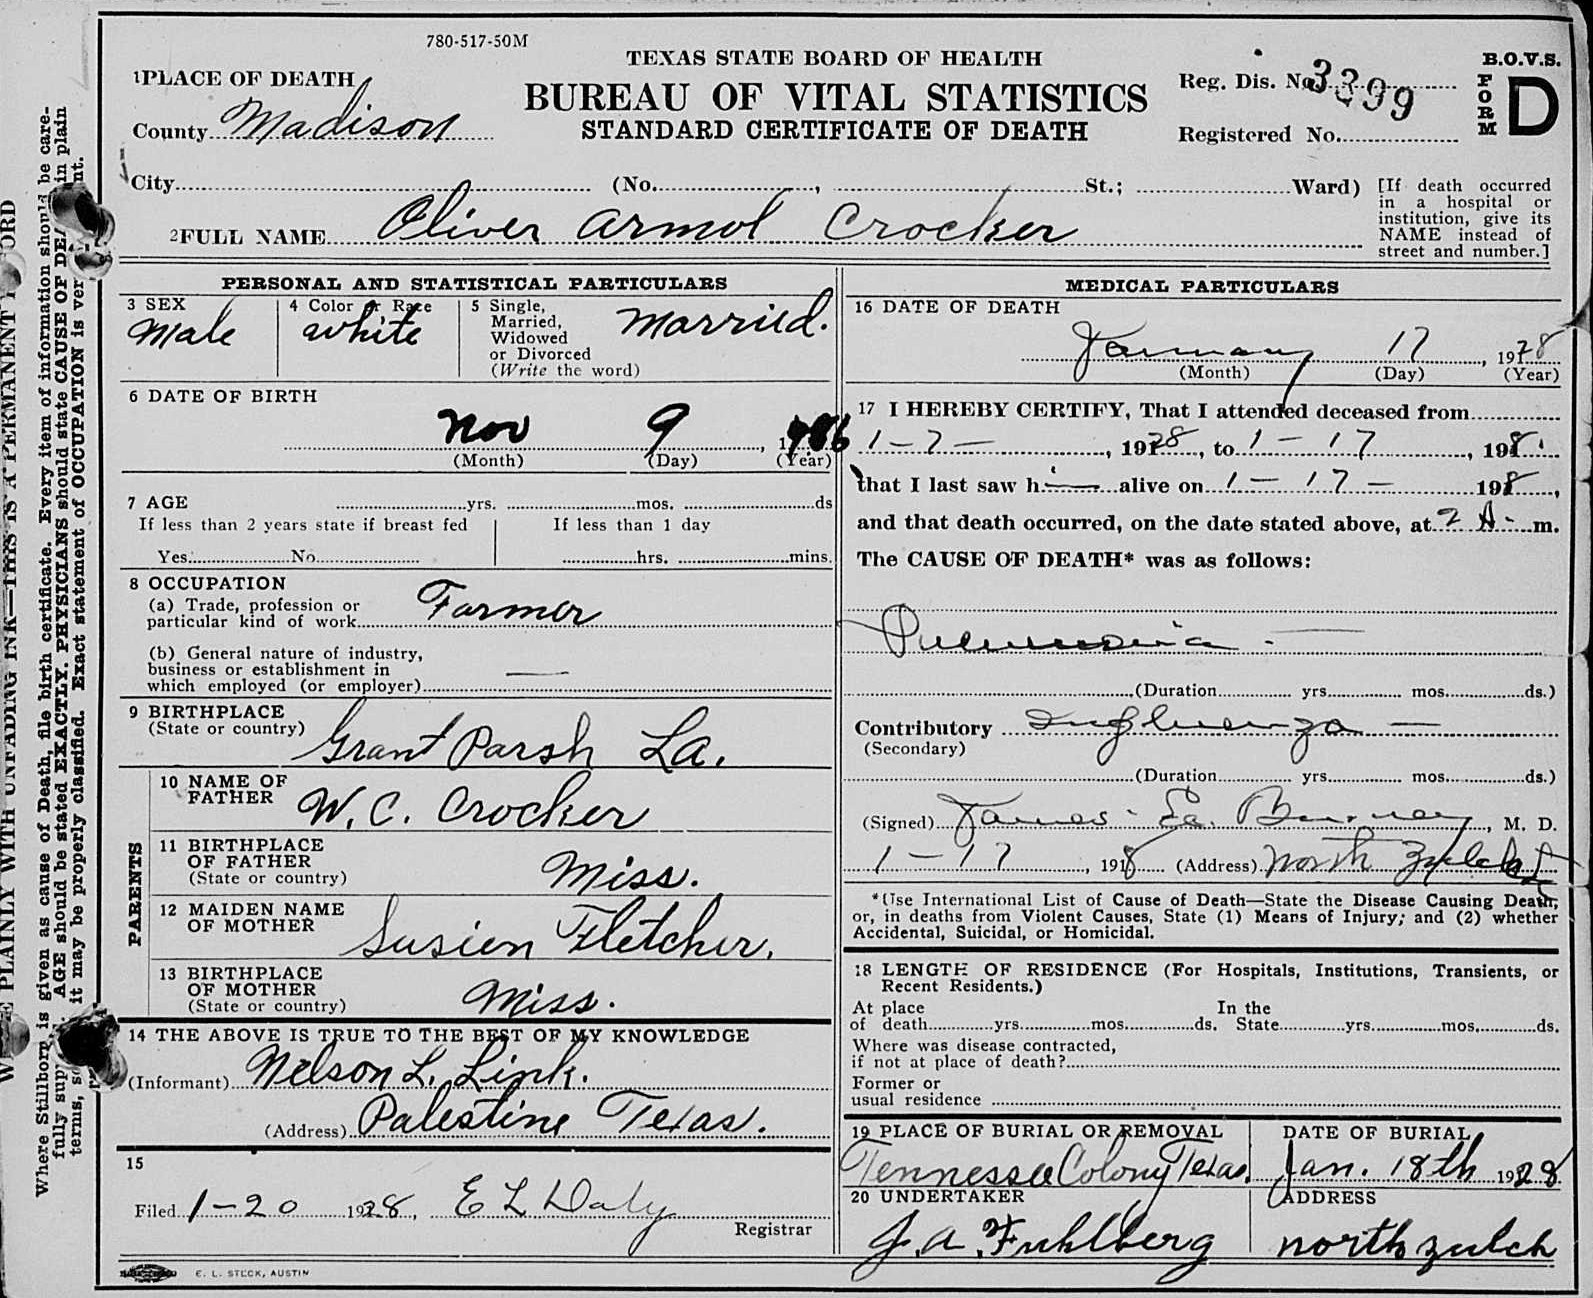 780-517-50M
TEXAS STATE BOARD OF HEALTH
BUREAU OF VITAL STATISTICS
STANDARD CERTIFICATE OF DEATH
B.O.V.S.
FORM D
Reg. Dis. No. 3399
Registered No.
1 PLACE OF DEATH
County Madison
City (No. , St.; Ward)
[If death occurred
in a hospital or
institution, give its
NAME instead of
street and number.]
2 FULL NAME Oliver Armol Crocker
PERSONAL AND STATISTICAL PARTICULARS
3 SEX
Male
4 Color or Race
white
5 Single,
Married,
Widowed
or Divorced
(Write the word)
Married.
6 DATE OF BIRTH
Nov 9
(Month) (Day) (Year)
7 AGE yrs. mos. ds
If less than 2 years state if breast fed
Yes No
If less than 1 day
hrs. mins.
8 OCCUPATION
(a) Trade, profession or
particular kind of work Farmer
(b) General nature of industry,
business or establishment in
which employed (or employer) —
9 BIRTHPLACE
(State or country) Grant Parsh La.
PARENTS
10 NAME OF
FATHER W. C. Crocker
11 BIRTHPLACE
OF FATHER
(State or country) Miss.
12 MAIDEN NAME
OF MOTHER Susien Fletcher.
13 BIRTHPLACE
OF MOTHER
(State or country) Miss.
14 THE ABOVE IS TRUE TO THE BEST OF MY KNOWLEDGE
(Informant) Nelson L. Link.
(Address) Palestine Texas.
15
Filed 1-20 1928, E L Daly
Registrar
E. L. STECK, AUSTIN
MEDICAL PARTICULARS
16 DATE OF DEATH
January 17, 1928
(Month) (Day) (Year)
17 I HEREBY CERTIFY, That I attended deceased from
1-7-, 1928, to 1-17, 198
that I last saw hi— alive on 1-17- 198,
and that death occurred, on the date stated above, at 2 A. m.
The CAUSE OF DEATH* was as follows:
Pneumonia -
(Duration yrs. mos. ds.)
Contributory Influenza —
(Secondary)
(Duration yrs. mos. ds.)
(Signed) James , M. D.
1-17, 1918 (Address) North Zulch
*(Use International List of Cause of Death—State the Disease Causing Death;
or, in deaths from Violent Causes, State (1) Means of Injury; and (2) whether
Accidental, Suicidal, or Homicidal.
18 LENGTH OF RESIDENCE (For Hospitals, Institutions, Transients, or
Recent Residents.)
At place In the
of death yrs. mos. ds. State yrs. mos. ds.
Where was disease contracted,
if not at place of death?
Former or
usual residence
19 PLACE OF BURIAL OR REMOVAL
Tennessee Colony Texas.
DATE OF BURIAL
Jan. 18th 1928
20 UNDERTAKER
J. A. Fuhlberg
ADDRESS
north zulch
PLAINLY WITH UNFADING INK—THIS IS A PERMANENT
Where Stillborn is given as cause of Death, file birth certificate. Every item of information should be care-
fully AGE should be stated EXACTLY. PHYSICIANS should state CAUSE OF in plain
terms, it may be properly classified. Exact statement of OCCUPATION is